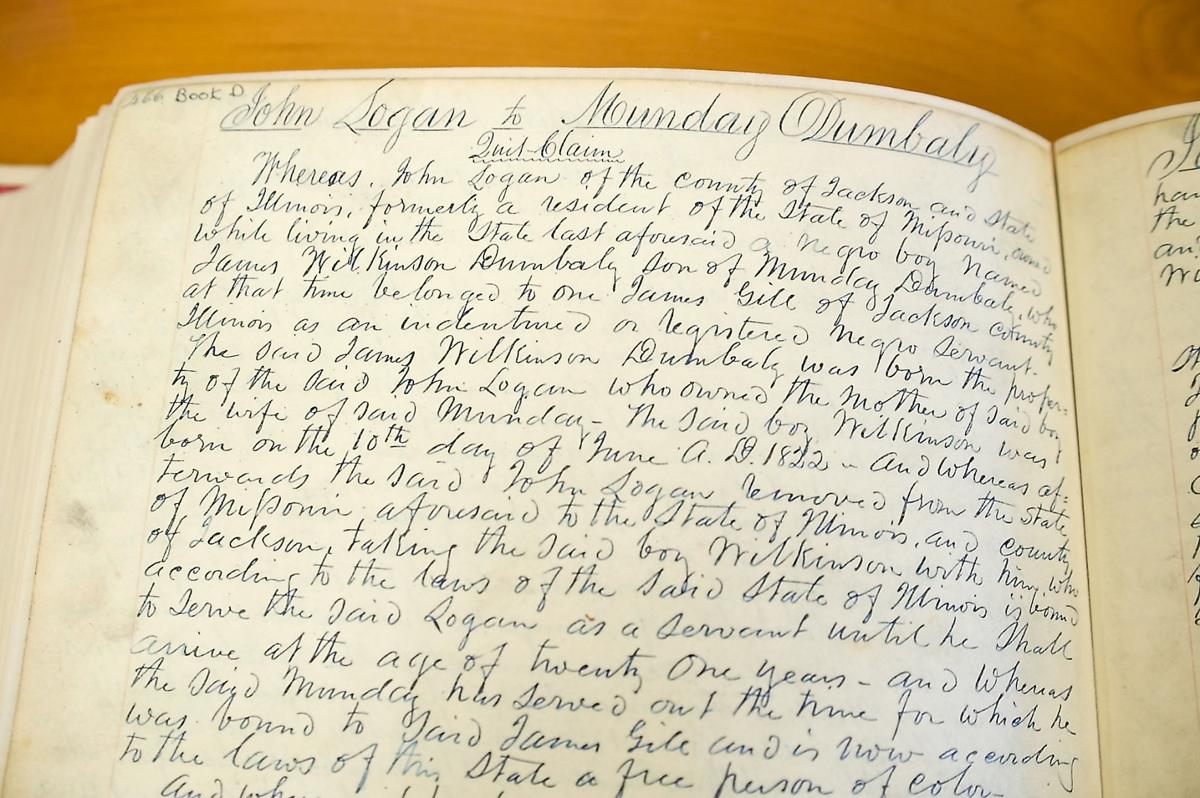 566 Book D
John Logan to Munday Dumbaly
Quit-Claim
Whereas, John Logan of the county of Jackson and State
of Illinois, formerly a resident of the State of Missouri, owned
while living in the State last aforesaid a negro boy named
James Wilkinson Dumbaly son of Munday Dumbaly, who
at that time belonged to one James Gill of Jackson county
Illinois as an indentured or registered negro servant.
The said James Wilkinson Dumbaly was born the proper=
ty of the said John Logan who owned the mother of said boy
the wife of said Munday - The said boy Wilkinson was
born on the 10th day of June A. D. 1822 - and whereas af=
terwards the said John Logan removed from the State
of Missouri aforesaid to the State of Illinois, and county
of Jackson, taking the said boy Wilkinson with him, who
according to the laws of the said State of Illinois is bound
to serve the said Logan as a servant until he shall
arrive at the age of twenty one years - and whereas
the said Munday has served out the time for which he
was bound to said James Gill and is now according
to the laws of this State a free person of color -
And
han
the
an